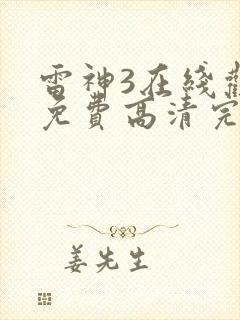 雷神3在綫觀
免費高清完
姜先生